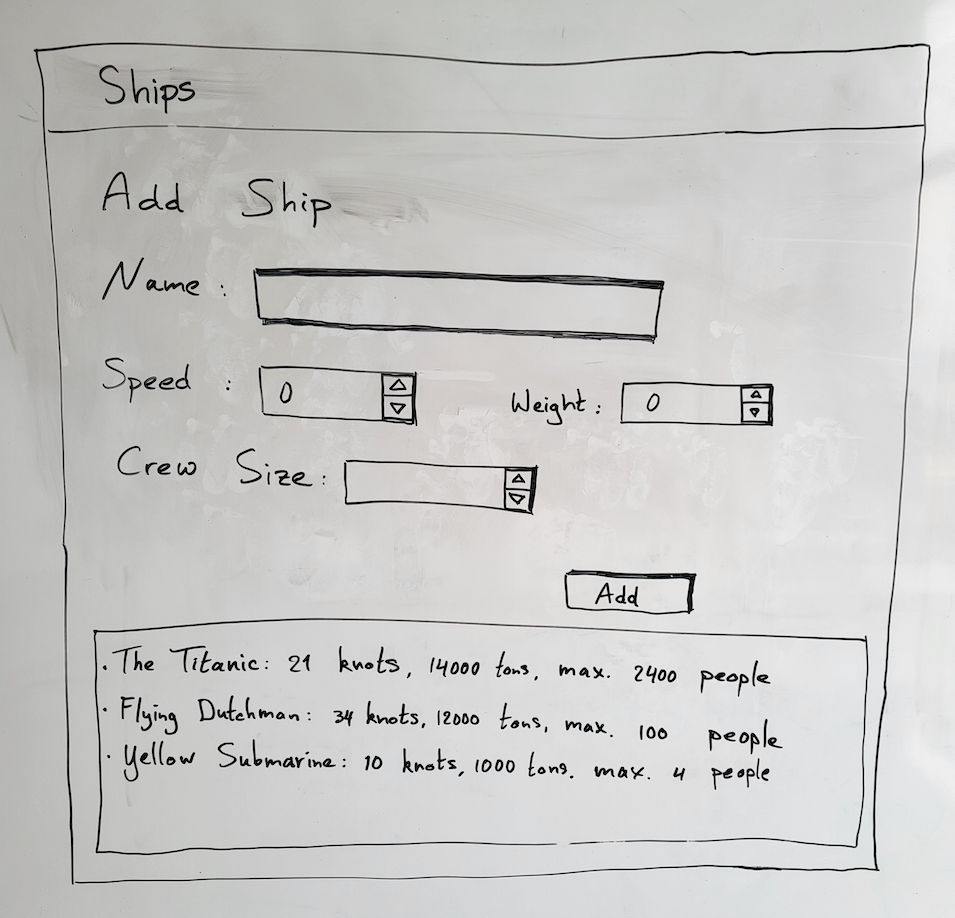 Ships
Add Ship
Name :
Speed : 0 Weight : 0
Crew Size :
Add
· The Titanic: 21 knots, 14000 tons, max. 2400 people
· Flying Dutchman: 34 knots, 12000 tons, max. 100 people
· Yellow Submarine: 10 knots, 1000 tons. max. 4 people